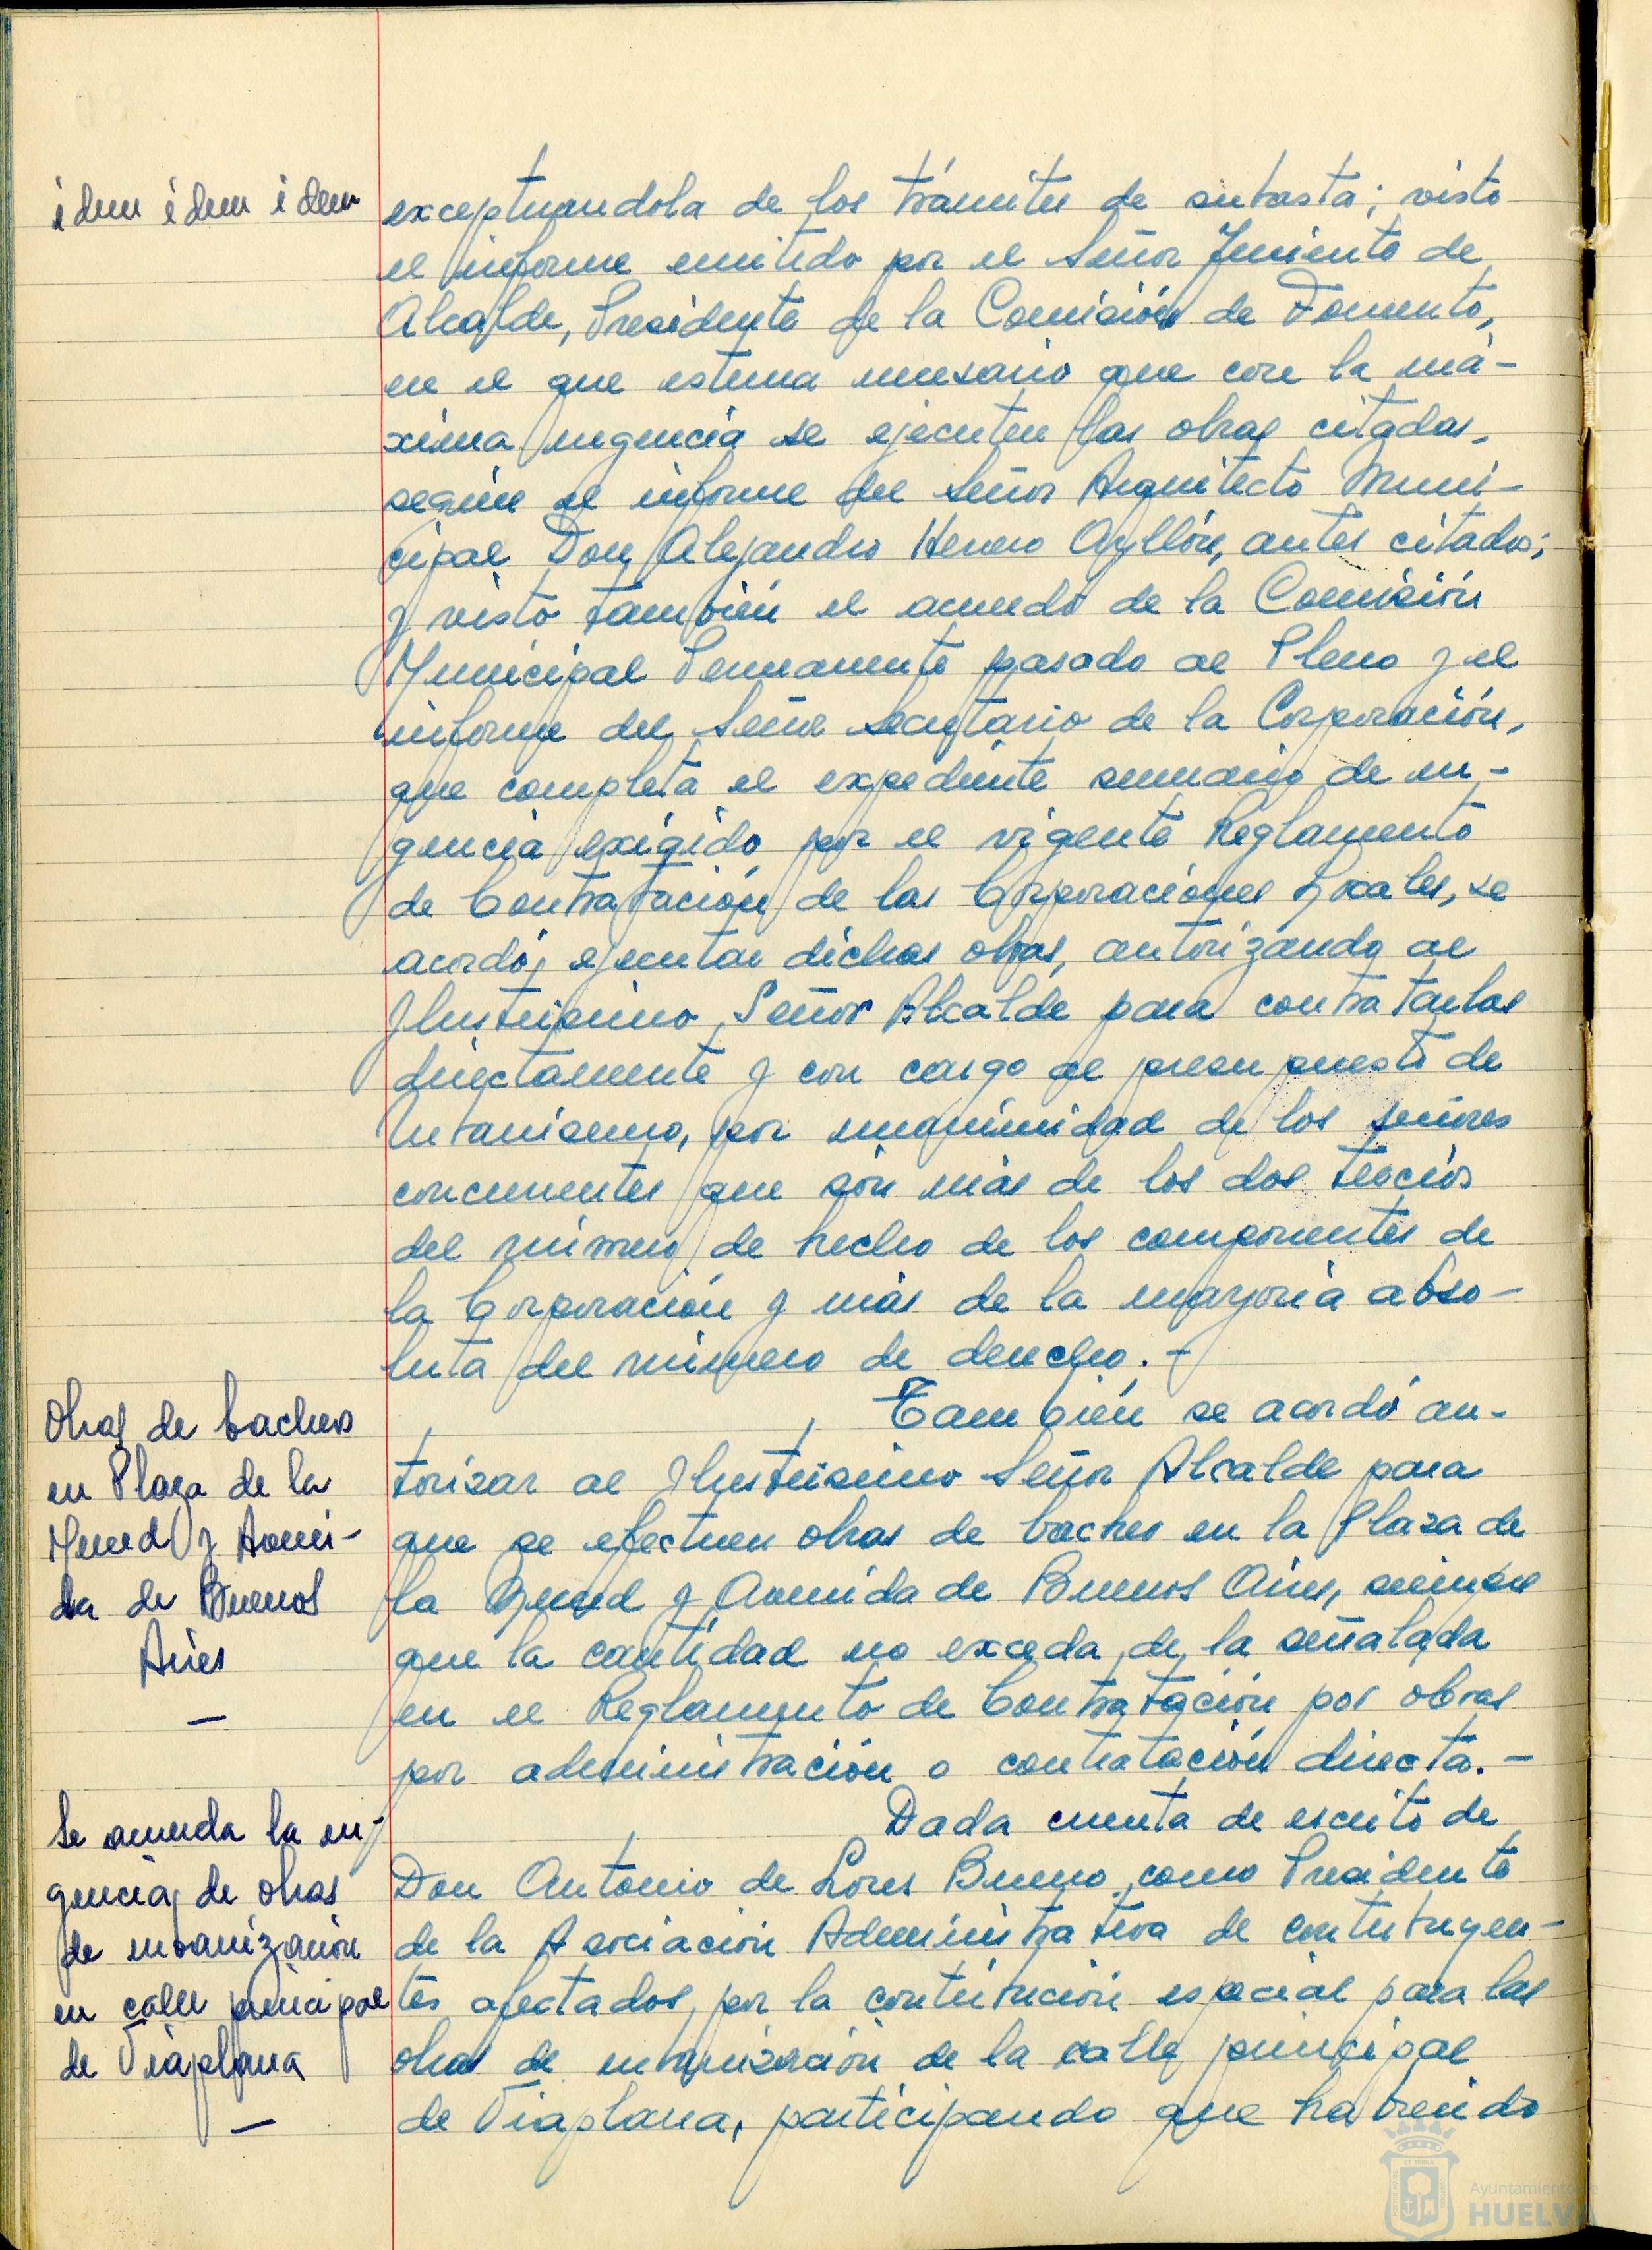 idem idem idem
exceptuandola de los trámites de subasta; visto
el informe emitido por el Señor Teniente de
Alcalde, Presidente de la Comisión de Fomento,
en el que estima necesario que con la má-
xima urgencia se ejecuten las obras citadas,
según el informe del Señor Arquitecto Muni-
cipal Don Alejandro Herrero Ayllón, antes citado;
y visto también el acuerdo de la Comisión
Municipal Permanente pasado al Pleno y el
informe del Señor Secretario de la Corporación,
que completa el expediente sumario de ur-
gencia exigido por el vigente Reglamento
de Contratación de las Corporaciones Locales, se
acordó, ejecutar dichas obras, autorizando al
Ilustrisimo Señor Alcalde para contratarlas
directamente y con cargo al presupuesto de
Urbanismo, por unanimidad de los señores
concurrentes que són más de los dos tercios
del número de hecho de los componentes de
la Corporación y más de la mayoría abso-
luta del número de derecho. -
Obras de baches
en Plaza de la
Merced y Aveni-
da de Buenos
Aires
—
También se acordó au-
torizar al Ilustrisimo Señor Alcalde para
que se efectuen obras de baches en la Plaza de
la Merced y Avenida de Buenos Aires, siempre
que la cantidad no exceda de la señalada
en el Reglamento de Contratación por obras
por administración o contratación directa. -
Se acuerda la ur-
gencia de obras
de urbanización
en calle principal
de Viaplana
—
Dada cuenta de escrito de
Don Antonio de Lores Bueno, como Presidente
de la Asociación Administrativa de contribuyen-
tes afectados, por la contribución especial para las
obras de urbanización de la calle principal
de Viaplana, participando que habiendo
Ayuntamiento de
HUELVA